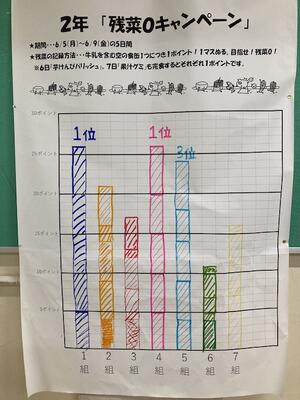 2年 「残菜0キャンペーン」
★期間・・・6/5(月)～6/9(金)の5日間
★残菜の記録方法・・・牛乳を含む空の食缶1つにつき1ポイント！1マスぬる。目指せ！残菜0！
※6日「芋けんぴ
7日「果汁グミ」も完食するとそれぞれ1ポイントです。
30ポイント
1位
1位
25ポイント
3位
20ポイント
15ポイント
10ポイント
5ポイント
1 2 3 4 5 6 7
組 組 組 組 組 組 組